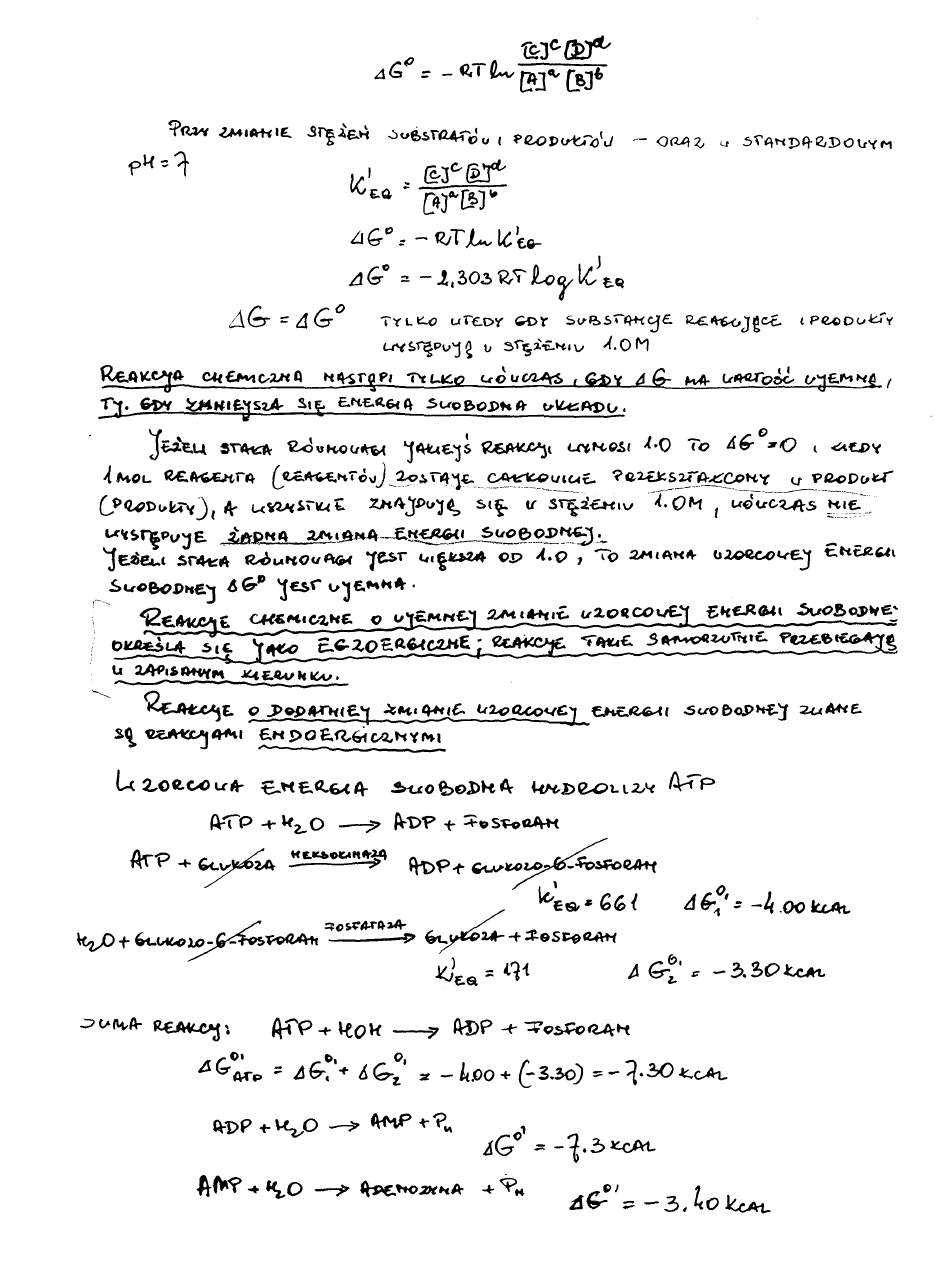 ΔG° = - RT ln [C]ᶜ [D]ᵈ / [A]ᵃ [B]ᵇ
PRZY ZMIANIE STĘŻEŃ SUBSTRATÓW I PRODUKTÓW – ORAZ W STANDARDOWYM
pH = 7
K'EQ = [C]ᶜ [D]ᵈ / [A]ᵃ [B]ᵇ
ΔG° = - RT ln K'EQ
ΔG° = - 2,303 RT log K'EQ
ΔG = ΔG° TYLKO WTEDY GDY SUBSTANCJE REAGUJĄCE I PRODUKTY
WYSTĘPUJĄ W STĘŻENIU 1.0M
REAKCJA CHEMICZNA NASTĄPI TYLKO WÓWCZAS, GDY ΔG MA WARTOŚĆ UJEMNĄ,
TJ. GDY ZMNIEJSZA SIĘ ENERGIA SWOBODNA UKŁADU.
JEŻELI STAŁA RÓWNOWAGI JAKIEJŚ REAKCJI WYNOSI 1.0 TO ΔG°=0, KIEDY
1 MOL REAGENTA (REAGENTÓW) ZOSTAJE CAŁKOWICIE PRZEKSZTAŁCONY W PRODUKT
(PRODUKTY), A WSZYSTKIE ZNAJDUJĄ SIĘ W STĘŻENIU 1.0M, WÓWCZAS NIE
WYSTĘPUJE ŻADNA ZMIANA ENERGII SWOBODNEJ.
JEŻELI STAŁA RÓWNOWAGI JEST WIĘKSZA OD 1.0, TO ZMIANA WZORCOWEJ ENERGII
SWOBODNEJ ΔG° JEST UJEMNA.
REAKCJE CHEMICZNE O UJEMNEJ ZMIANIE WZORCOWEJ ENERGII SWOBODNEJ
OKREŚLA SIĘ JAKO EGZOERGICZNE; REAKCJE TAKIE SAMORZUTNIE PRZEBIEGAJĄ
W ZAPISANYM KIERUNKU.
REAKCJE O DODATNIEJ ZMIANIE WZORCOWEJ ENERGII SWOBODNEJ ZWANE
SĄ REAKCJAMI ENDOERGICZNYMI
WZORCOWA ENERGIA SWOBODNA HYDROLIZY ATP
ATP + H₂O → ADP + FOSFORAN
ATP + GLUKOZA HEKSOKINAZA → ADP + GLUKOZO-6-FOSFORAN
K'EQ = 661 ΔG₁°' = -4.00 KCAL
H₂O + GLUKOZO-6-FOSFORAN FOSFATAZA → GLUKOZA + FOSFORAN
K'EQ = 171 ΔG₂°' = -3.30 KCAL
SUMA REAKCJI: ATP + HOH → ADP + FOSFORAN
ΔG°'ATP = ΔG₁°' + ΔG₂°' = -4.00 + (-3.30) = -7.30 KCAL
ADP + H₂O → AMP + Pₙ
ΔG°' = -7.3 KCAL
AMP + H₂O → ADENOZYNA + Pₙ
ΔG°' = -3.40 KCAL